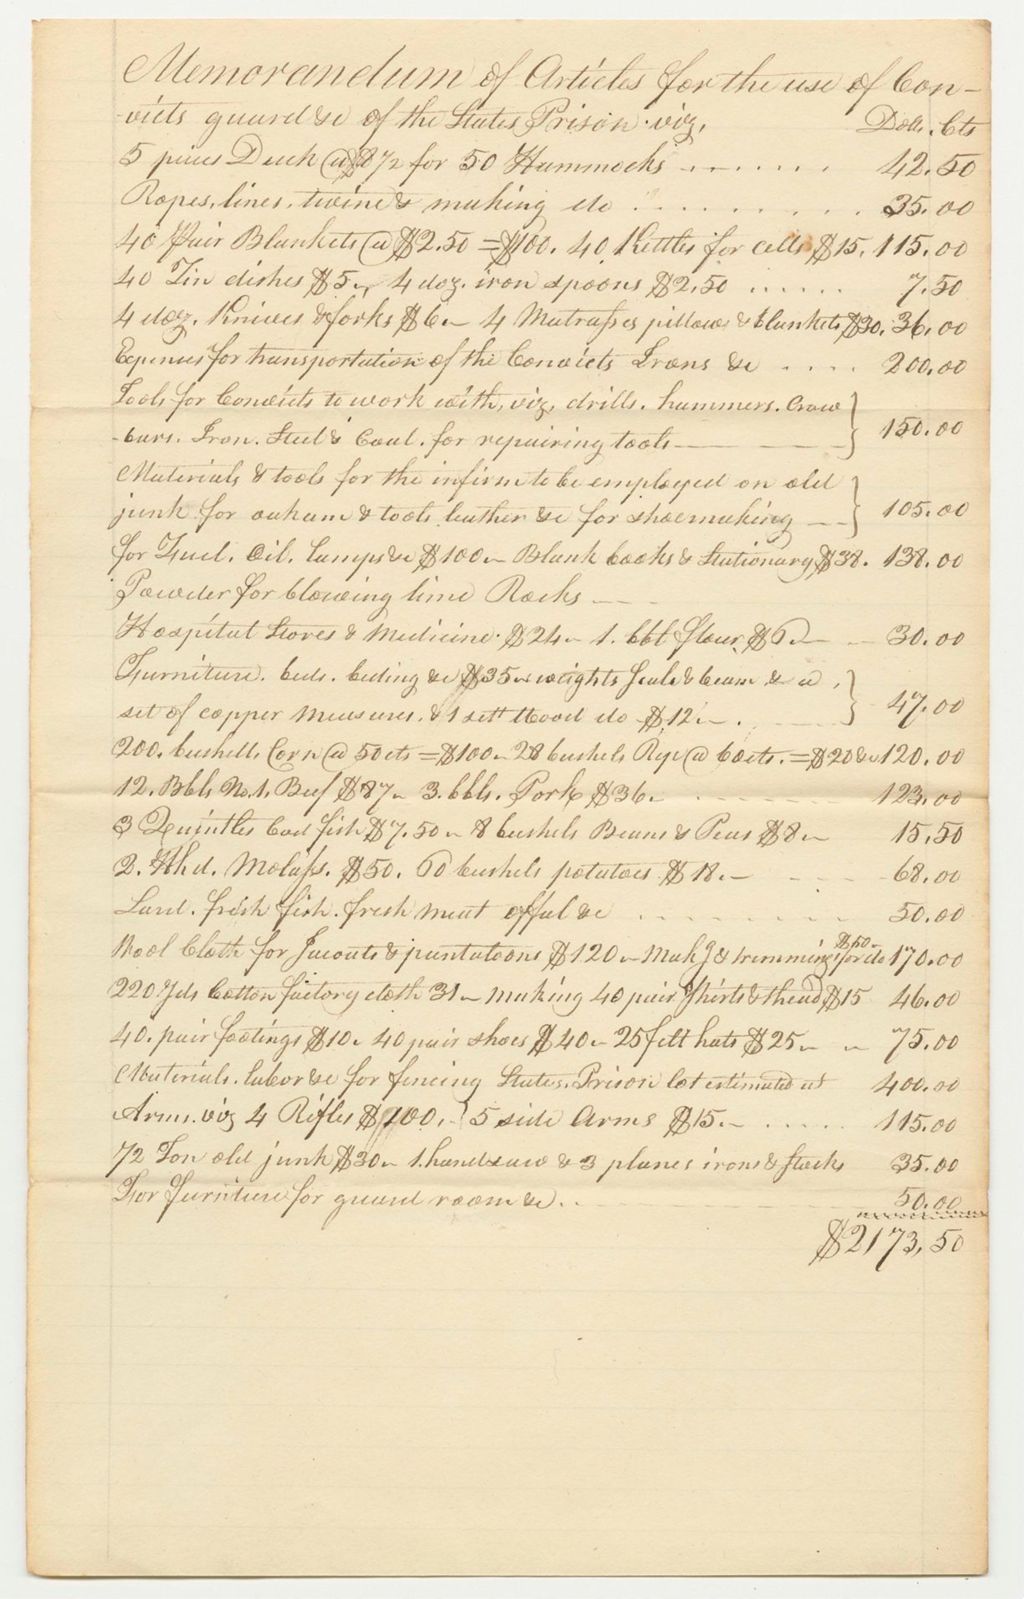 Memorandum of Articles for the use of Con-
victs guard &c of the States Prison. viz, Dolls. Cts
5 pieces Duck @ $8 1/2 for 50 Hammocks 42.50
Ropes, lines, twine & making do 35.00
40 Pair Blankets @ $2.50 = $100. 40 Kettles for cells $15. 115.00
40 Tin dishes $5 4 doz. iron spoons $2.50 7.50
4 doz. Knives & forks $6 4 Matrasses pillows & blankets $30. 36.00
Expenses for transportation of the Convicts Irons &c 200.00
Tools for Convicts to work with, viz, drills. hammers. Crow
bars. Iron. Steel & Coal. for repairing tools 150.00
Materials & tools for the infirm to be employed on old
junk for oakum & tools leather &c for shoemaking 105.00
for Fuel. Oil. lamps &c $100 Blank books & Stationary $38. 138.00
Powder for blowing lime Rocks
Hospital Stores & Medicine. $24 1. bbl flour. $6 30.00
Furniture. beds. beding &c $35 weights Scale & beam & a
set of copper measures. & 1 sett Wood do $12. 47.00
200. bushells Corn @ 50cts = $100 28 bushels Rye @ cts. = $20 120.00
12. Bbls No. 1. Beef $87 3. bbls. Pork $36 123.00
3 Quintles Cod fish $7.50 8 bushels Beans & Peas $8 15.50
2. Hhd. Molass. $50. 60 bushels potatoes $18. 68.00
Lard. fresh fish. fresh meat offal &c 50.00
Wool Cloth for Jacoats & pantaloons $120 Mak'g & trimmings for do $50 170.00
220 Yds Cotton factory cloth 31 making 40 pair Shirts & thead $15 46.00
40. pair footings $10. 40 pair shoes $40 25 felt hats $25 75.00
Materials. labor &c for fencing States Prison lot estimated at 400.00
Arms. viz 4 Rifles $100. 5 side Arms $15. 115.00
1/2 Ton old junk $30 1. handsaw & 3 planes irons & stocks 35.00
For furniture for guard room &c. 50.00
$2173,50